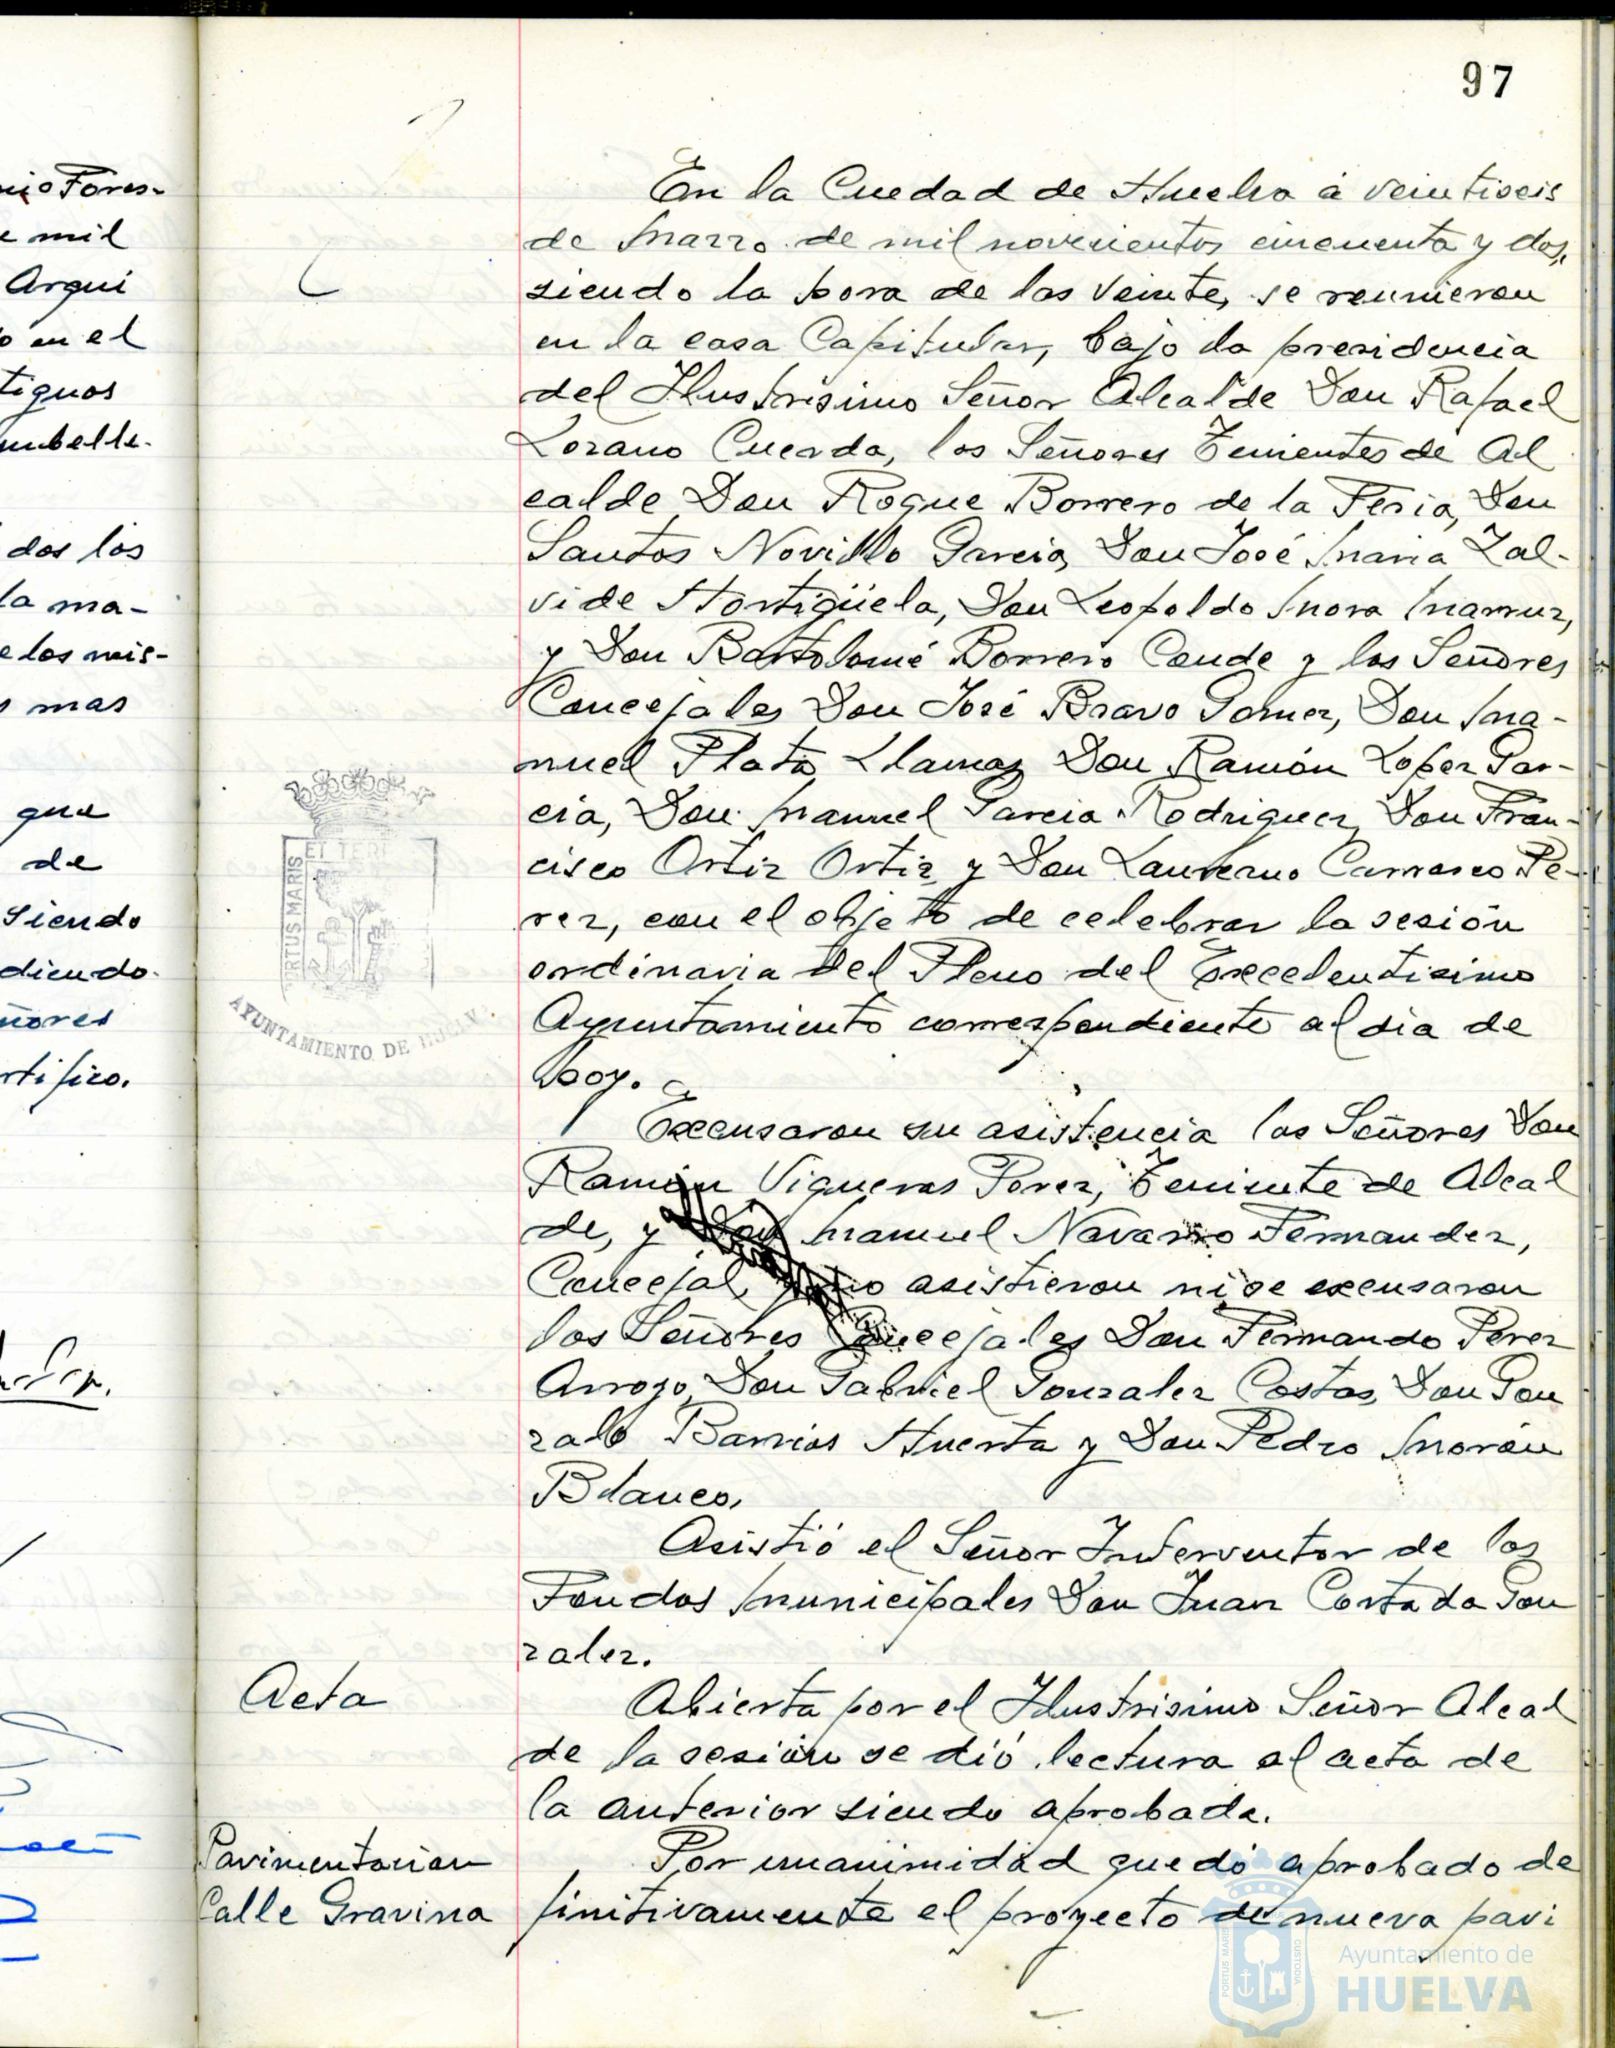 97
nio Fores-
e mil
Arqui
o en el
tiguos
mbelle-
dos los
la ma-
e los mis-
s mas
que
de
siendo
diendo
ñores
rtifico.
En la Cuedad de Huelva á veintiseis
de Marzo de mil novecientos cincuenta y dos,
siendo la hora de las veinte, se reunieron
en la casa Capitular, bajo la presidencia
del Ilustrisimo Señor Alcalde Don Rafael
Lozano Cuerda, los Señores Tenientes de Al
calde Don Roque Borrero de la Feria, Don
Santos Novillo Garcia, Don José Maria Zal-
vide Hortigüela, Don Leopoldo Mora
y Don Bartolomé Borrero Conde y los Señores
Concejales Don José Bravo Gomez, Don Ma-
nuel Plata Llamas Don Ramón Lopez Gar-
cia, Don Manuel Garcia Rodriguez, Don Fran-
cisco Ortiz Ortiz y Don Carrasco Pe-
rez, con el objeto de celebrar la sesión
ordinaria del Pleno del Excelentisimo
Ayuntamiento correspondiente al dia de
hoy.
Excusaron su asistencia los Señores Don
Ramón Vigueras Perez, Teniente de Alcal
de, y Don Manuel Navarro Fernandez,
Concejal, no asistieron ni se excusaron
los Señores Concejales Don Fernando Perez
Arroyo, Don Gabriel Gonzalez Costas, Don Gon
zalo Barrios Huerta y Don Pedro Morón
Blanco.
Asistió el Señor Interventor de los
Fondos Municipales Don Juan Cortada Gon
zalez.
Acta
Abierta por el Ilustrisimo Señor Alcal
de la sesión se dió lectura al acta de
la anterior siendo aprobada.
Pavimentacion
Calle Gravina
Por unanimidad quedó aprobado de
finitivamente el proyecto de nueva pavi
PORTUS MARIS
AYUNTAMIENTO DE HUELVA
PORTUS MARIS
CUSTODIA
Ayuntamiento de
HUELVA